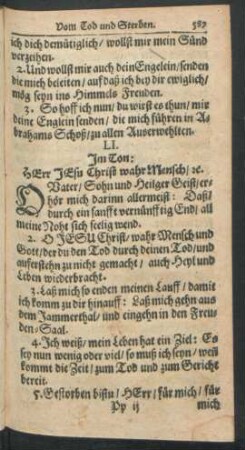 Vom Tod und Sterben. 587
ich dich demütiglich/ wollst mir mein Sünd
verzeihen.
2. Und wollst mir auch dein Engelein/ senden
die mich beleiten/ auf daß ich bey dir ewiglich/
mög seyn ins Himmels Freuden.
3. So hoff ich nun/ du wirst es thun/ mir
deine Englein senden/ die mich führen in A-
brahams Schoß/ zu allen Auserwehlten.
LI.
Im Ton:
HErr JEsu Christ wahr Mensch/ ꝛc.
O Vater/ Sohn und Heilger Geist/ er-
hör mich darinn allermeist: Daß
durch ein sanfft vernünfftig End/ all
meine Noht sich seelig wend.
2. O JESU Christ/ wahr Mensch und
Gott/ der du den Tod durch deinen Tod/ und
auferstehn zu nicht gemacht/ auch Heyl und
Leben wiederbracht.
3. Laß mich so enden meinen Lauff/ damit
ich komm zu dir hinauff: Laß mich gehn aus
dem Jammerthal/ und eingehn in den Freu-
den-Saal.
4. Ich weiß/ mein Leben hat ein Ziel: Es
sey nun wenig oder viel/ so muß ich seyn/ weñ
kommt die Zeit/ zum Tod und zum Gericht
bereit.
5. Gestorben bistu/ HErr/ für mich/ für
Pp ij mich